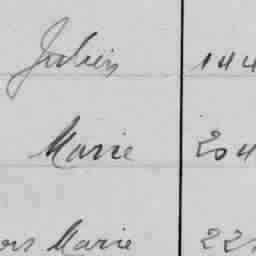 Julien 144
Marie 204
Marie 22